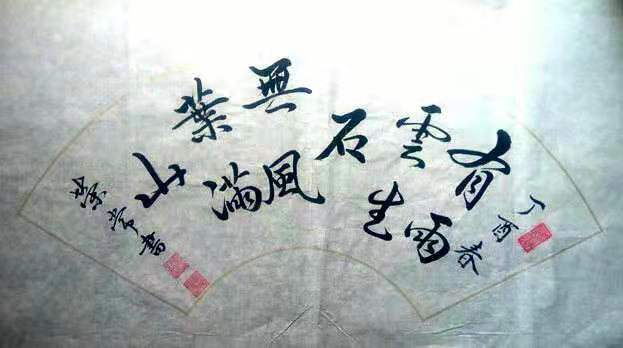 丁酉春
有雨雲生石
無風葉滿山
榮常書